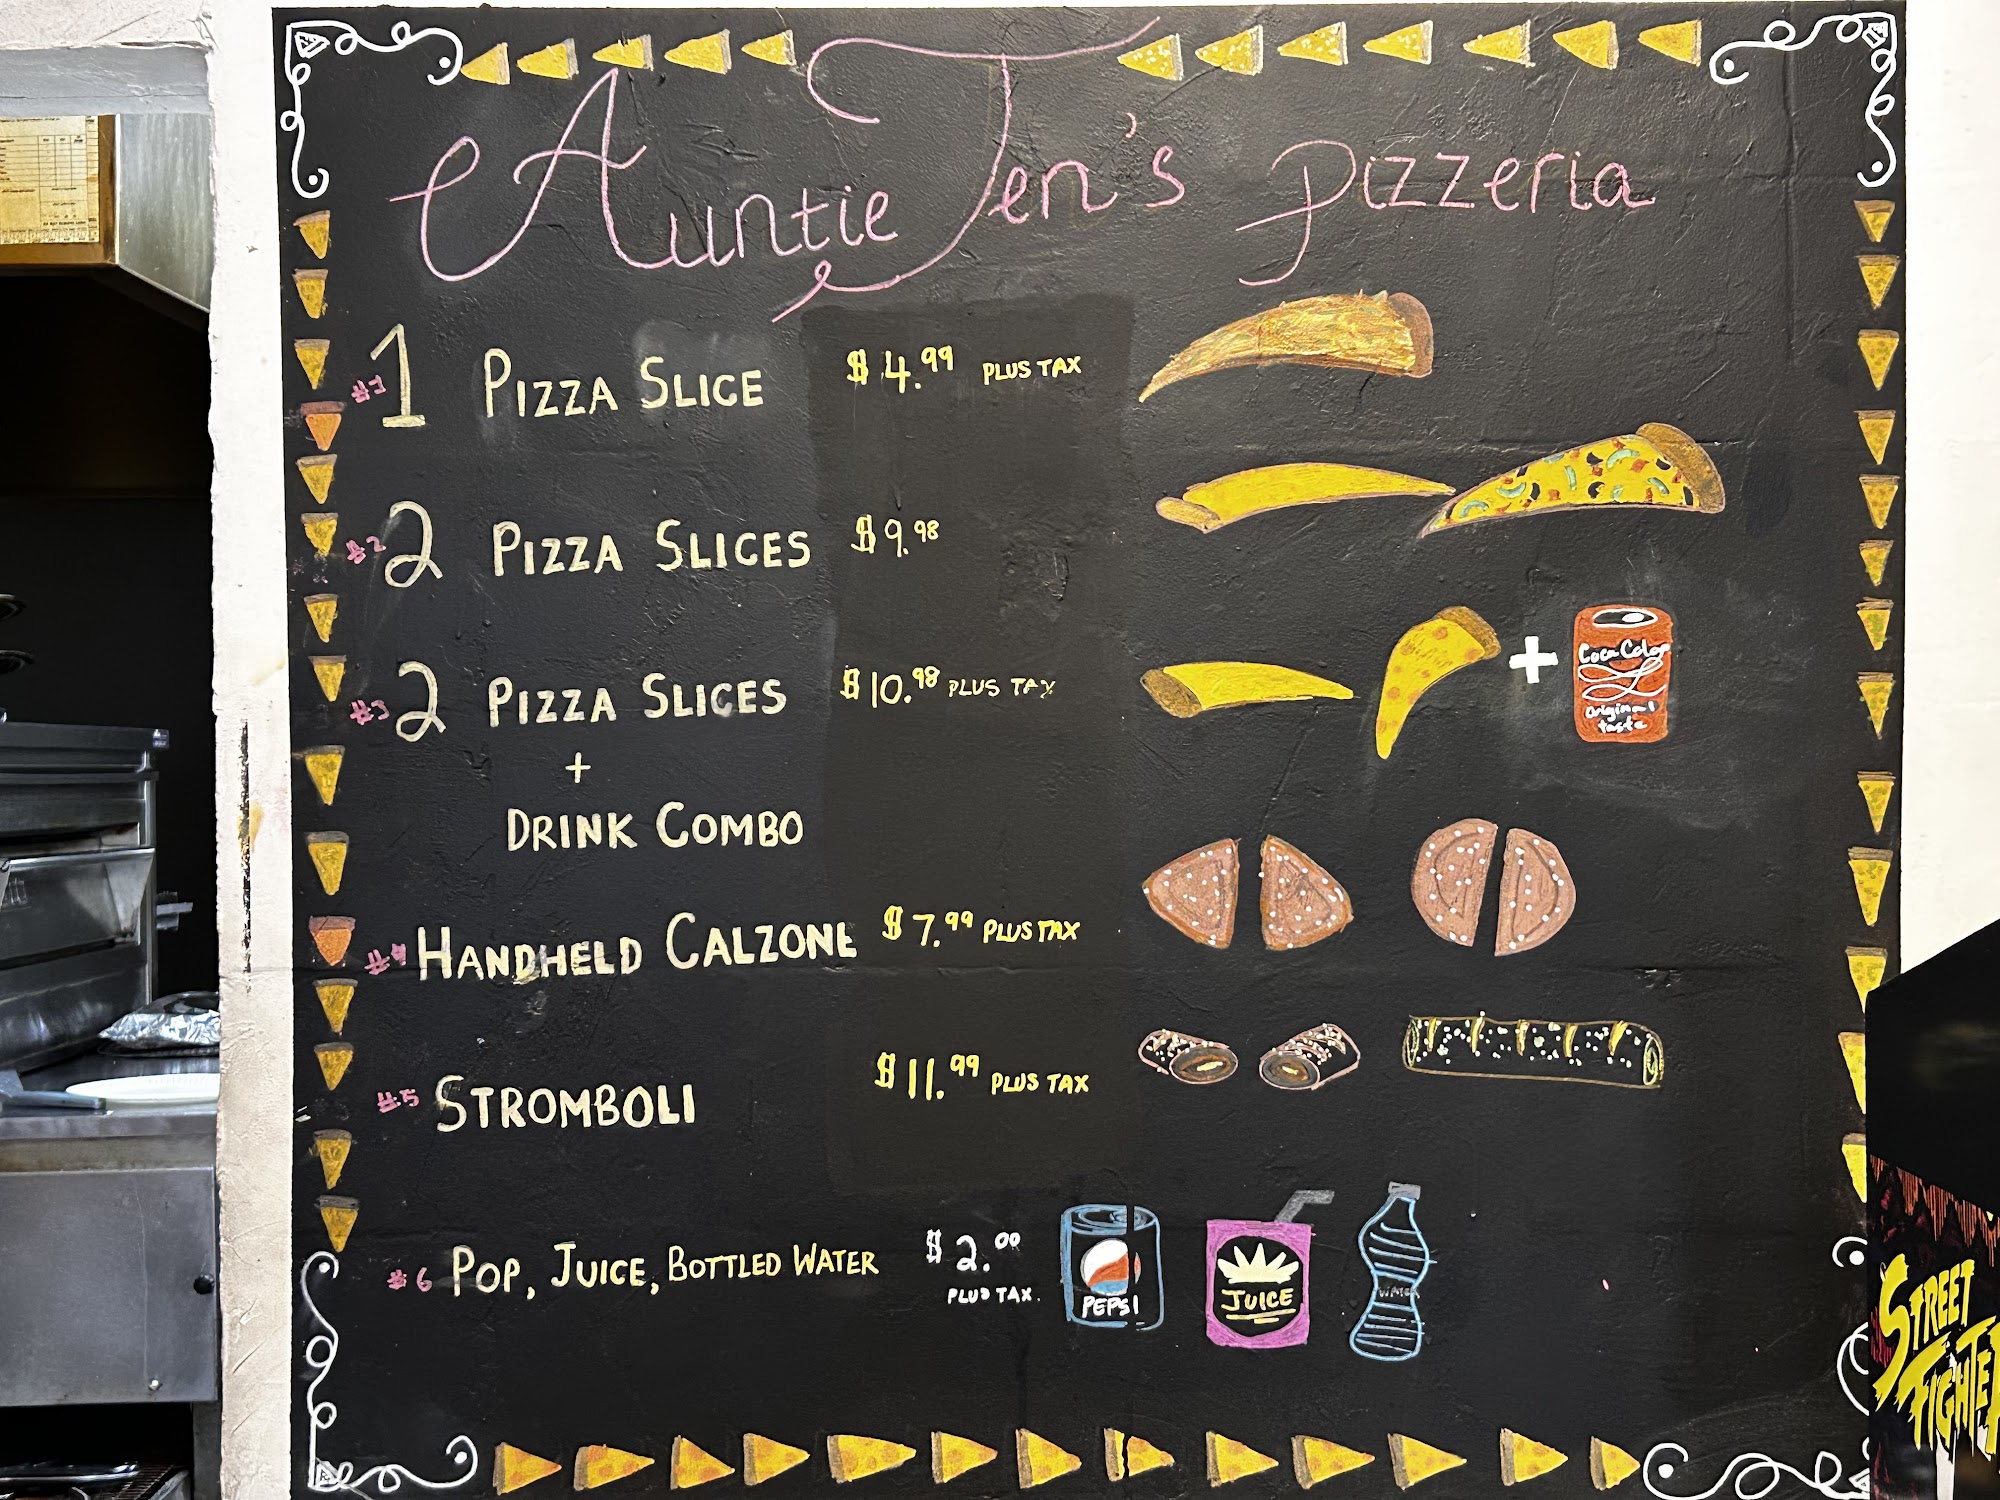 Auntie Jen's Pizzeria
#1 1 PIZZA SLICE $4.99 PLUS TAX
#2 2 PIZZA SLICES $9.98
#3 2 PIZZA SLICES $10.98 PLUS TAX
+
DRINK COMBO
+
Coca Cola
original
taste
#4 HANDHELD CALZONE $7.99 PLUS TAX
#5 STROMBOLI $11.99 PLUS TAX
#6 POP, JUICE, BOTTLED WATER $2.00
PLUS TAX.
PEPSI
JUICE
WATER
STREET
FIGHTER